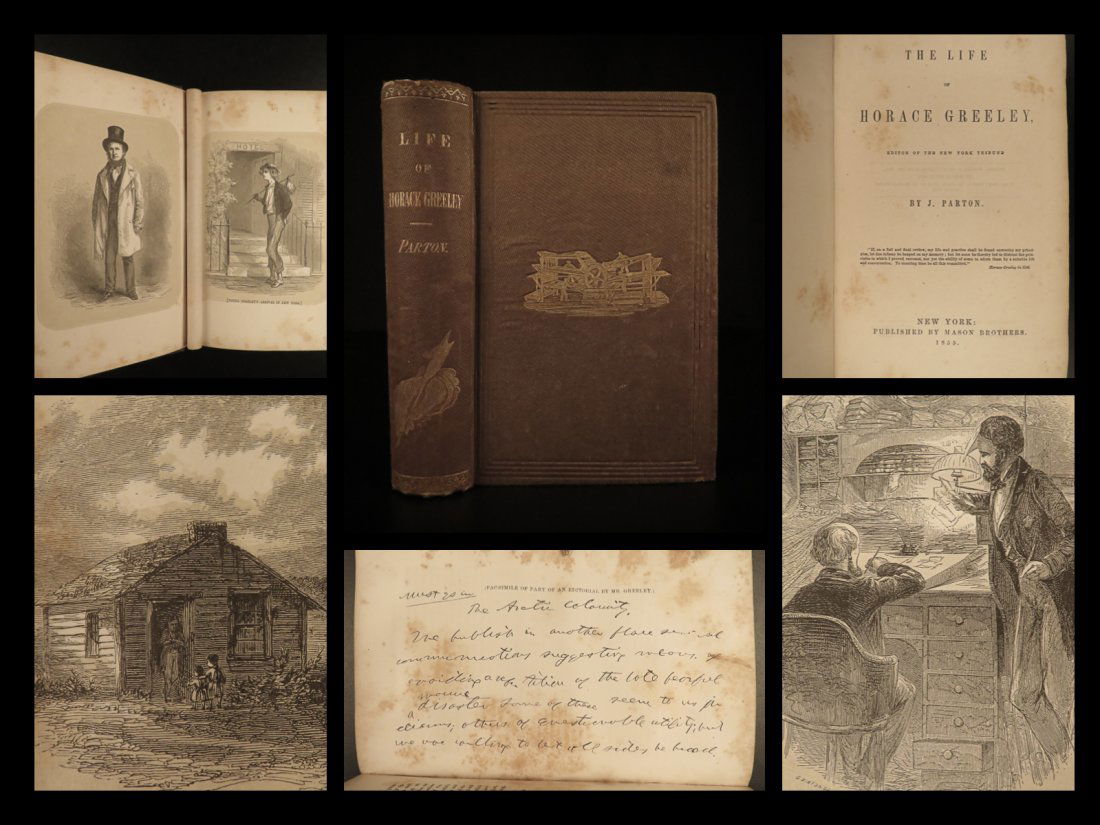 HOTEL
[YOUNG GREELEY'S ARRIVAL IN NEW YORK.]
LIFE
OF
HORACE GREELEY
PARTON.
THE LIFE
OF
HORACE GREELEY,
EDITOR OF THE NEW YORK TRIBUNE
BY J. PARTON.
"If, on a full and final review, my life and practice shall be found unworthy my princi-
ples, let due infamy be heaped on my memory; but let none be thereby led to distrust the prin-
ciples to which I proved recreant, nor yet the ability of some to adorn them by a suitable life
and conversation. To unerring time be all this committed."
Horace Greeley in 1846.
NEW YORK:
PUBLISHED BY MASON BROTHERS.
1855.
(FACSIMILE OF PART OF AN EDITORIAL BY MR. GREELEY.)
must go in
The Arctic Calamity.
We publish in another place several
communications suggesting means of
avoiding a repetition of the late fearful
disaster some of these seem to us ju
dicious, others of questionable utility, but
we are willing to let all sides be heard.